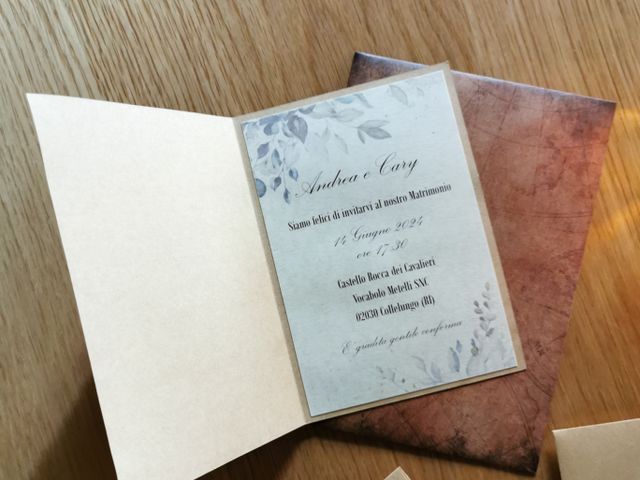 Andrea e Cary
Siamo felici di invitarvi al nostro Matrimonio
14 Giugno 2024
ore 17:30
Castello Rocca dei Cavalieri
Vocabolo Metelli SNC
02030 Collelungo (RI)
E' gradita gentile conferma